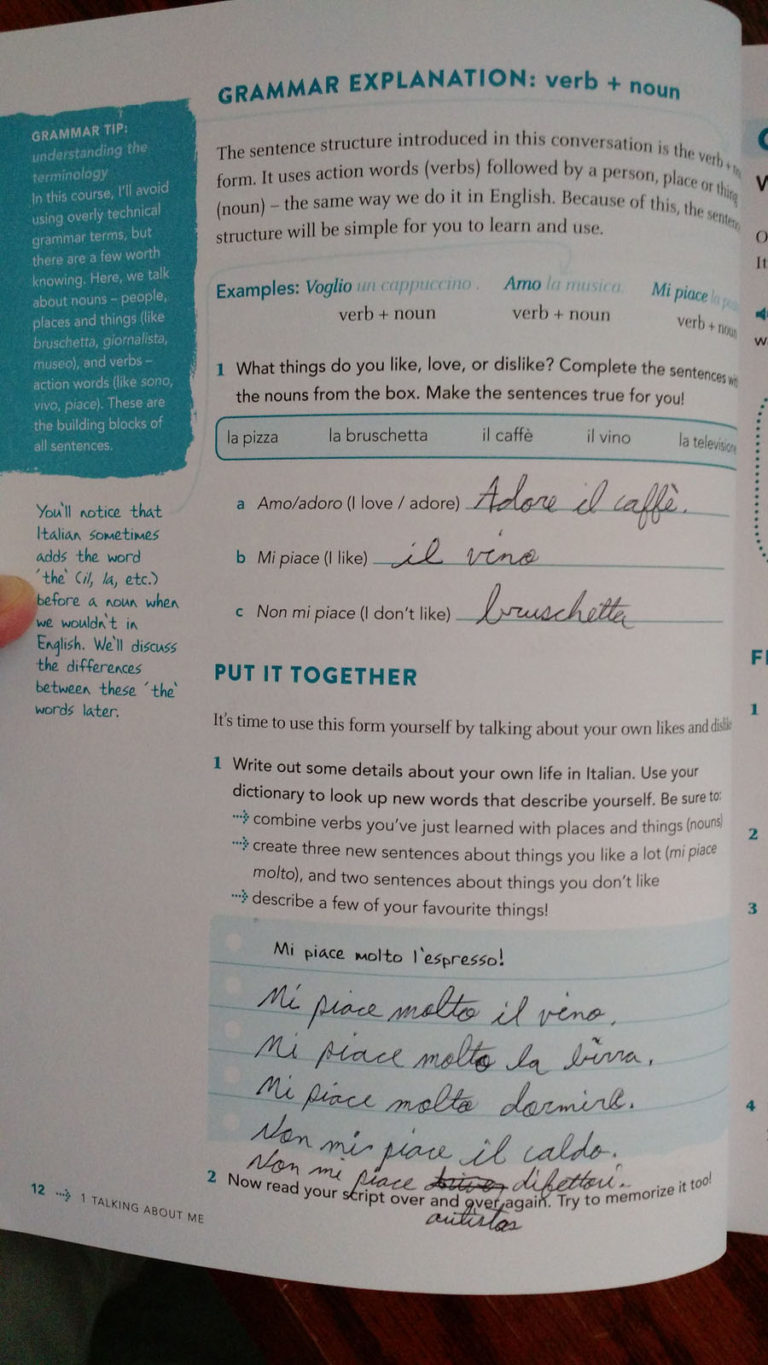 GRAMMAR EXPLANATION: verb + noun
GRAMMAR TIP:
understanding the
terminology
In this course, I'll avoid
using overly technical
grammar terms, but
there are a few worth
knowing. Here, we talk
about nouns – people,
places and things (like
bruschetta, giornalista,
museo), and verbs –
action words (like sono,
vivo, piace). These are
the building blocks of
all sentences.
You'll notice that
Italian sometimes
adds the word
'the' (il, la, etc.)
before a noun when
we wouldn't in
English. We'll discuss
the differences
between these 'the'
words later.
The sentence structure introduced in this conversation is the verb +
form. It uses action words (verbs) followed by a person, place or thing
(noun) – the same way we do it in English. Because of this, the
structure will be simple for you to learn and use.
Examples: Voglio un cappuccino. Amo la musica. Mi piace la
verb + noun verb + noun verb + noun
1 What things do you like, love, or dislike? Complete the sentences
the nouns from the box. Make the sentences true for you!
la pizza la bruschetta il caffè il vino la televisione
a Amo/adoro (I love / adore) Adore il caffè.
b Mi piace (I like) il vino
c Non mi piace (I don't like) bruschetta
PUT IT TOGETHER
It's time to use this form yourself by talking about your own likes and
1 Write out some details about your own life in Italian. Use your
dictionary to look up new words that describe yourself. Be sure to:
combine verbs you've just learned with places and things (nouns)
create three new sentences about things you like a lot (mi piace
molto), and two sentences about things you don't like
describe a few of your favourite things!
Mi piace molto l'espresso!
Mi piace molto il vino.
Mi piace molto la birra.
Mi piace molto dormire.
Non mi piace il caldo.
Non mi piace difettori.
2 Now read your script over and over again. Try to memorize it too!
autistas
12 1 TALKING ABOUT ME
W
O
It
w
1
2
3
4